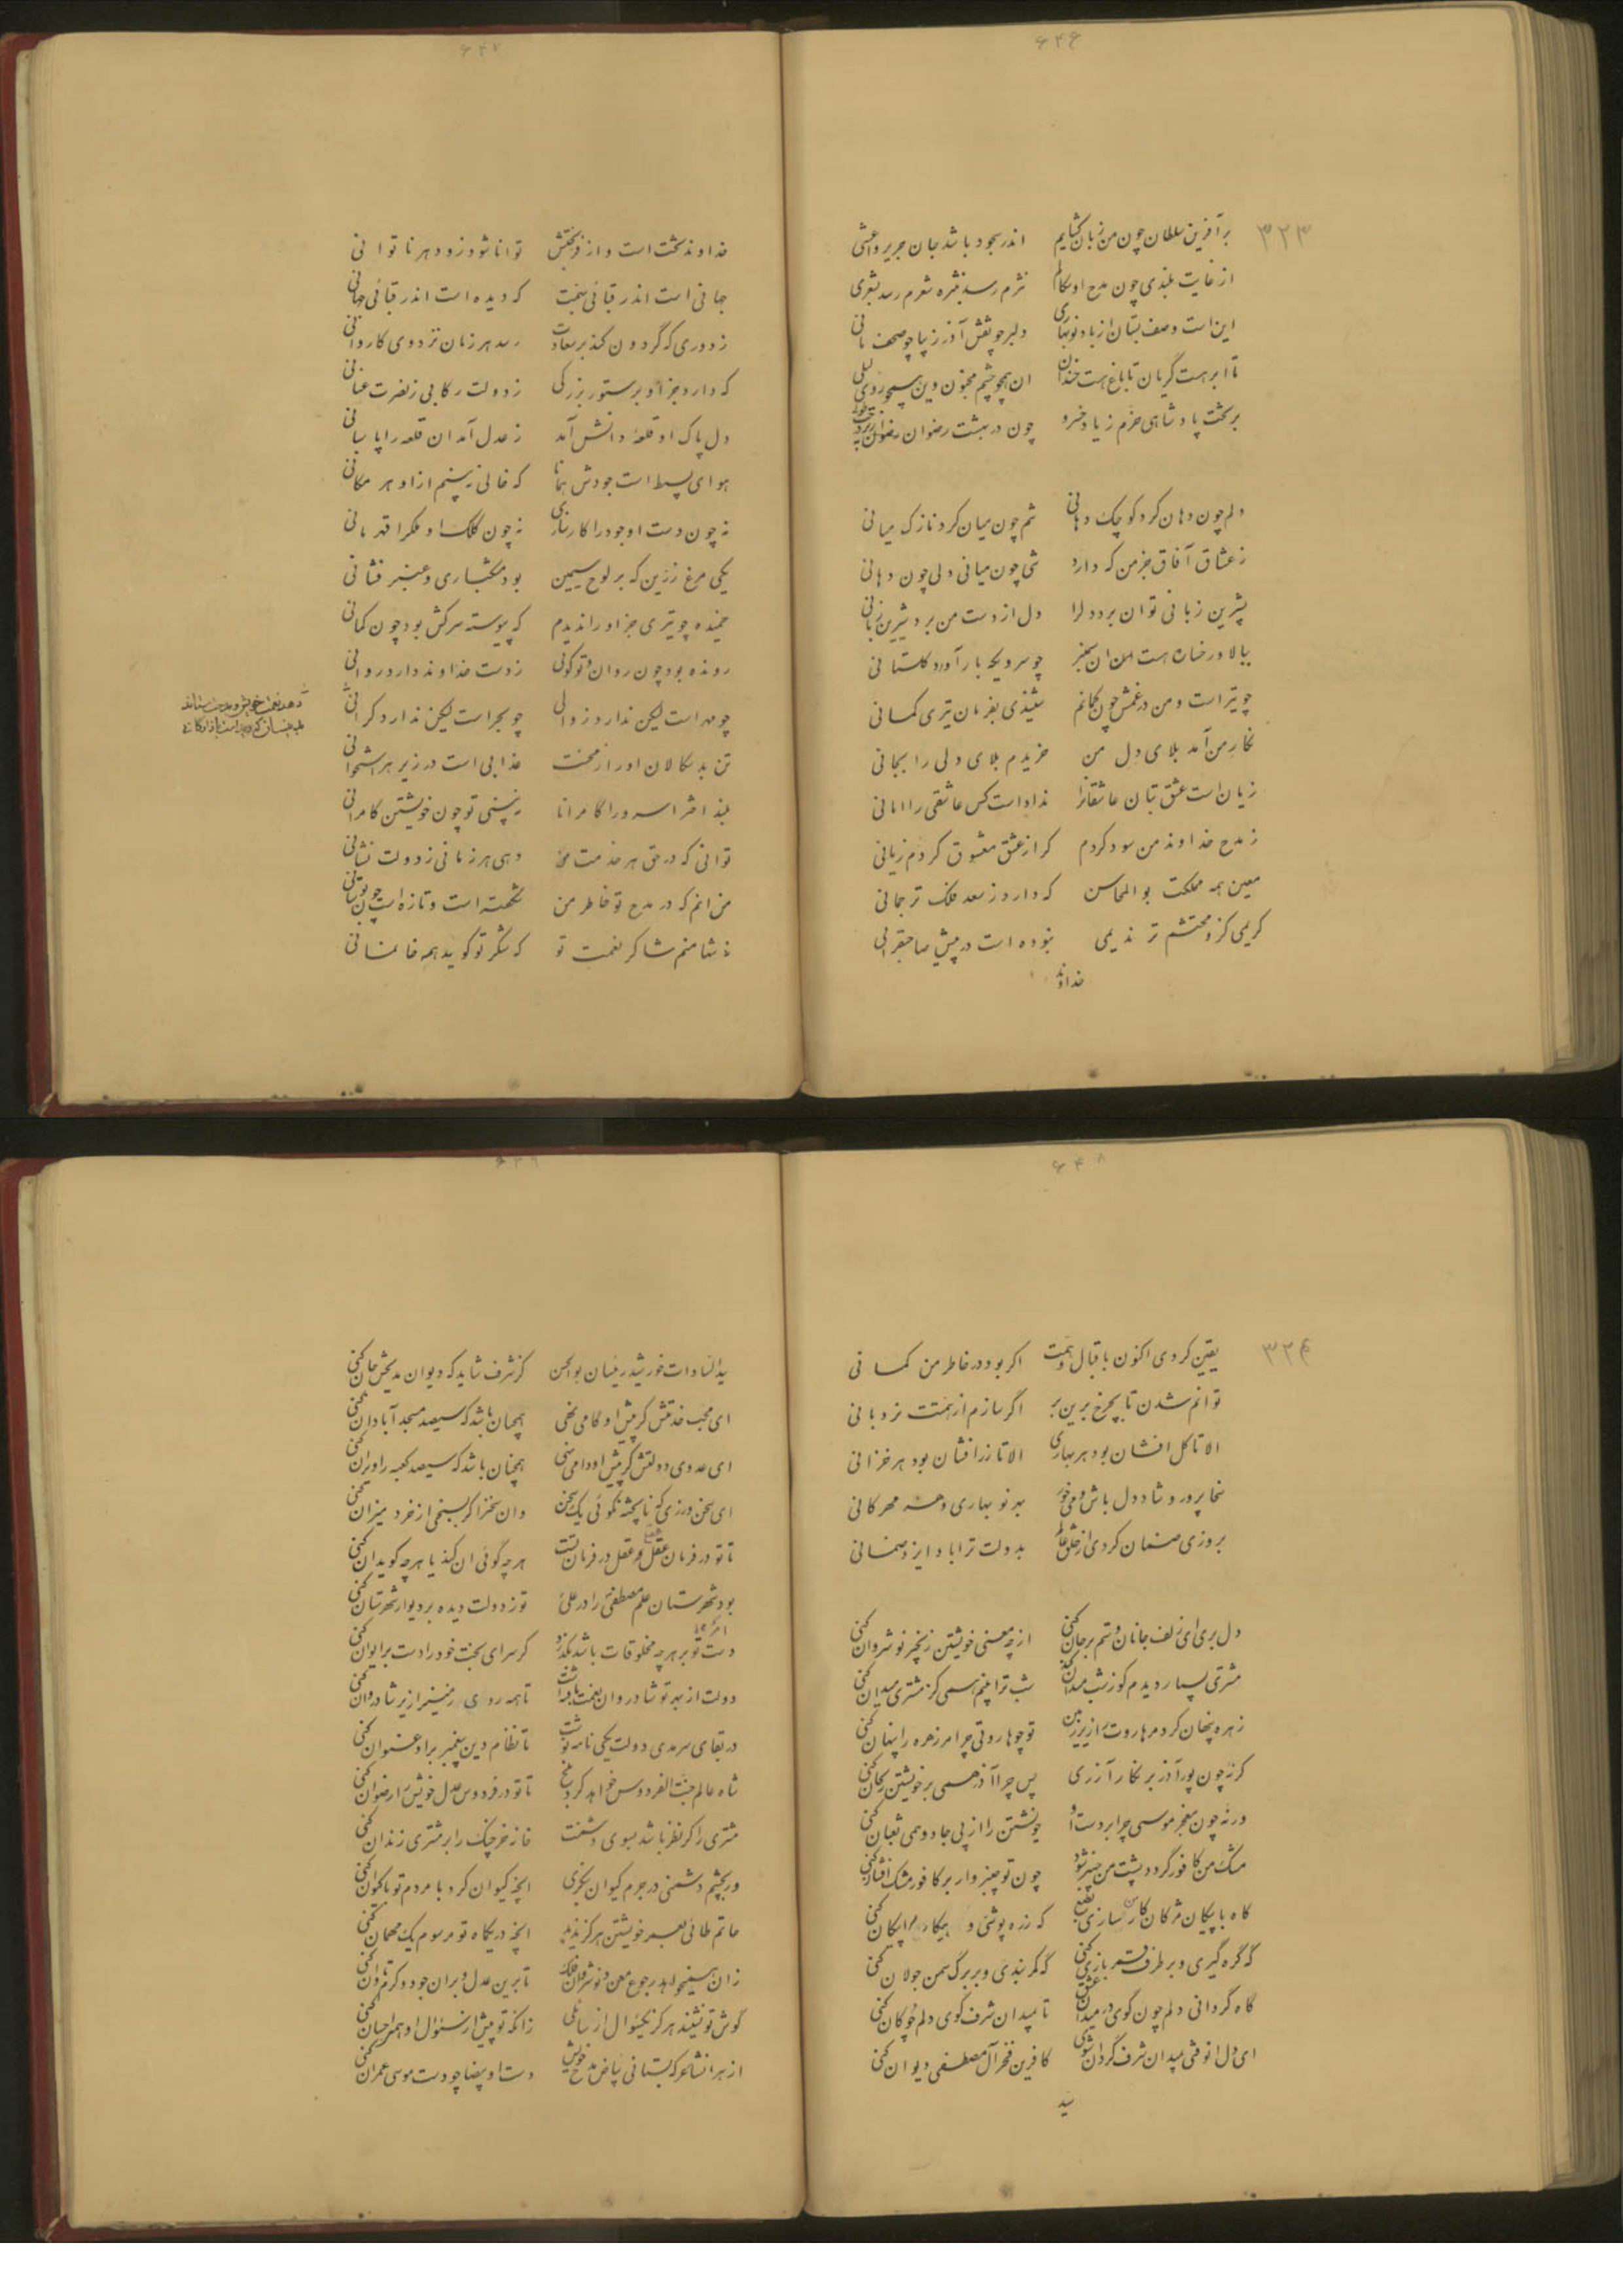 ۶۴۶
۳۲۳
بر آفرین سلطان چون من زبان گشایم اندر سجود باشد جان جریر و اعشی
از غایت بلندی چون مدح او سکالم نثرم رسد بنثره شعرم رسد بشعری
این است وصف بستان از باد نوبهاری دلبر چو نقش آذر زیبا چو صحف مانی
تا ابر هست گریان تا باغ هست خندان ان همچو چشم مجنون وین همچو روی لیلی
بر تخت پادشاهی خرم زیاد خسرو چون در بهشت رضوان
دلم چون دهان کرد کوچک دهانی تنم چون میان کرد نازک میانی
ز عشاق آفاق جز من که دارد تنی چون میانی دلی چون دهانی
بشیرین زبانی توان برد دلرا دل از دست من برد شیرین زبانی
ببالا و رخساره هست چو سرویکه بار آورد گلستانی
چو تیر است و من در غمش چون کمانم شنیدی بفرمان تیری کمانی
نگار من آمد بلای دل من خریدم بلای دلی را بجانی
زیان است عشق بتان عاشقانرا نداداست کس عاشقی را امانی
ز مدح خداوند من سود کردم گر از عشق معشوق کردم زیانی
معین همه مملکت بو المحاسن که دارد ز سعد فلک ترجمانی
کریمی کزو محتشم تر ندیمی نبوده است در پیش صاحبقرانی
خداوند
۶۴۷
خداوند تخت است و از فر بختش توانا شود زود هر ناتوانی
جهانی است اندر قبائی ببخت که دیده است اندر قبائی جهانی
ز دوری که گردون کند بر سعادت رسد هر زمان نزد وی کاروانی
که دارد جز او بر ستور بزرگی ز دولت رکابی ز نصرت عنانی
دل پاک او قلعه دانش آمد ز عدل آمد ان قلعه را پاسبانی
هوای بسیط است جودش همانا که خالی نبینم از او هر مکانی
نه چون دست او جود را کارسازی نه چون کلک او ملکرا قهرمانی
یکی مرغ زرین که بر لوح سیمین بود مشکباری و عنبر فشانی
خمیده چو تیری جز او را ندیدم که پیوسته سرکش بود چون کمانی
رونده بود چون روان و تو گوئی ز دست خداوند دارد روانی
چو مه است لیکن ندارد زوالی چو بحر است لیکن ندارد کرانی
تن بد سکالان او را ز محنت عذابی است در زیر هر استخوانی
بلند اخترا سرورا کامرانا نبینی تو چون خویشتن کامرانی
توانی که در حق هر خدمت من دهی هر زمانی ز دولت نشانی
من انم که در مدح تو خاطر من شکفته است و تازه است چون بوستانی
نه تنها منم شاکر نعمت تو که شکر تو گوید همه خانمانی
۶۴۸
۳۲۴
یقین کردی اکنون باقبال و همت اگر بود در خاطر من گمانی
توانم شدن تا بچرخ برین بر اگر سازم از همتت نردبانی
الا تا گل افشان بود هر بهاری الا تا زر افشان بود هر خزانی
سخا پرور و شاد دل باش و می خور بهر نو بهاری و هر مهرگانی
بروزی ضمان کردی از خلق عالم بدولت ترا باد ایزد ضمانی
دل بری ای زلف جانان و ستم بر جان کنی از چه معنی خویشتن زنجیر نوشروان کنی
مشتری بسیار دیدم کو ز شب میدان کند شب ترا بینم همی کز مشتری میدان کنی
زهره پنهان کرد مر هاروت را زیر زمین تو چو هاروتی چرا مر زهره را پنهان کنی
گرنه چون پور آذر بر نگار آزری پس چرا آذر همی بر خویشتن ریحان کنی
ورنه چون معجز موسی چرا بر دست او خویشتن را از پی جادو همی ثعبان کنی
مشک من کافور گردد پشت من چنبر شود چون تو چنبر وار بر کافور مشک افشان کنی
گاه با پیکان مژگان که زره پوشی و پیکان کنی
گه گره گیری و بر طرف قمر بازی کنی گه کمر بندی و بر برگ سمن جولان کنی
گاه گردانی دلم چون گوی در میدان عشق تا بمیدان شرف گوی دلم چوگان کنی
ای دل انوقتی بمیدان شرف گردان شوی کافرین فخر آل مصطفی دیوان کنی
سید
۶۴۹
سید السادات خورشید رئیسان بوالحسن کز شرف شاید که دیوان مدیحش جان کنی
ای محب خدمتش گر پیش او گامی نهی همچنان باشد که سیصد مسجد آبادان کنی
ای عدوی دولتش گر پیش او دامی نهی همچنان باشد که سیصد کعبه را ویران کنی
ای سخن ورزی که ناپخته نگوئی یک سخن وان سخنرا گر بسنجی از خرد میزان کنی
تا تو در فرمان عقل و عقل در فرمان تست هر چه گوئی ان کند یا هر چه گوید ان کنی
بود شهرستان علم مصطفی را در علی تو ز دولت دیده بر دیوار شهرستان کنی
دست تو بر هر چه مخلوقات باشد بگذرد گر سرای بخت خود را دست بر ایوان کنی
دولت از بهر تو شادروان نعمت بافته است تا همه روی زمین را زیر شادروان کنی
در بقای سرمدی دولت یکی نامه نوشت تا نظام دین پیغمبر بر او عنوان کنی
شاه عالم جنت الفردوس خواهد کرد بلخ تا تو در فردوس عدل خویش را رضوان کنی
مشتری را گر نظر باشد بسوی دشمنت خانه خرچنگ را بر مشتری زندان کنی
ور بچشم دشمنی در جرم کیوان بنگری انچه کیوان کرد با مردم تو با کیوان کنی
حاتم طائی بعمر خویشتن هرگز ندید انچه در یکماه تو مرسوم یک مهمان کنی
زان همیخواهد رجوع معن و نوشروان فلک تا برین عدل و بران جود و کرم تاوان کنی
گوش تو نشنید هرگز یکسئوال از سائلی زانکه تو پیش از سئوال او همی احسان کنی
از هر انشاعر که بستانی بیاض مدح خویش دست او بیضا چو دست موسی عمران کنی